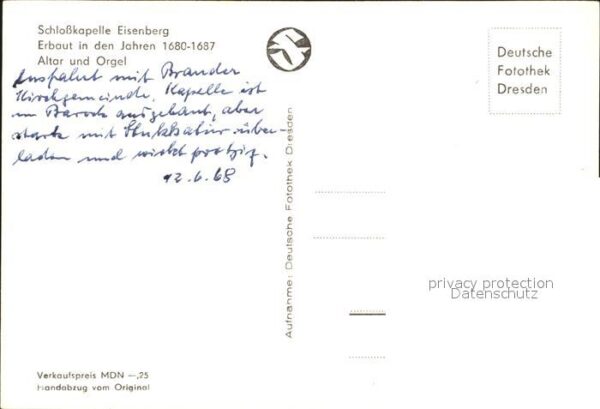 Schloßkapelle Eisenberg
Erbaut in den Jahren 1680-1687
Altar und Orgel
mit Brander
Kirchgemeinde. Kapelle ist
im Barock ausgebaut, aber
stark mit Stukkatur über-
laden und wirkt protzig.
12.6.68
Deutsche
Fotothek
Dresden
Aufnahme: Deutsche Fotothek Dresden
privacy protection
Datenschutz
Verkaufspreis MDN —,25
Handabzug vom Original